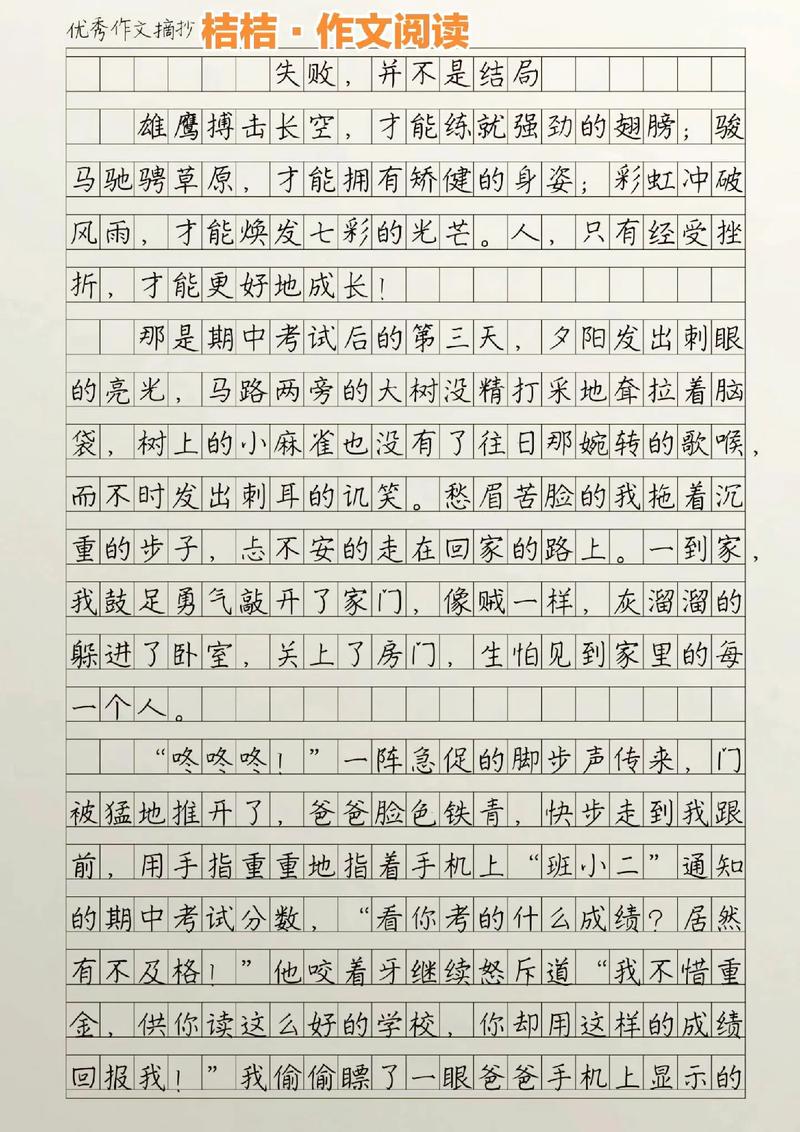 优秀作文摘抄 桔桔·作文阅读
失败，并不是结局
雄鹰搏击长空，才能练就强劲的翅膀；骏
马驰骋草原，才能拥有矫健的身姿；彩虹冲破
风雨，才能焕发七彩的光芒。人，只有经受挫
折，才能更好地成长！
那是期中考试后的第三天，夕阳发出刺眼
的亮光，马路两旁的大树没精打采地耷拉着脑
袋，树上的小麻雀也没有了往日那婉转的歌喉，
而不时发出刺耳的讥笑。愁眉苦脸的我拖着沉
重的步子，忐不安的走在回家的路上。一到家，
我鼓足勇气敲开了家门，像贼一样，灰溜溜的
躲进了卧室，关上了房门，生怕见到家里的每
一个人。
“咚咚咚！”一阵急促的脚步声传来，门
被猛地推开了，爸爸脸色铁青，快步走到我跟
前，用手指重重地指着手机上“班小二”通知
的期中考试分数，“看你考的什么成绩？居然
有不及格！”他咬着牙继续怒斥道“我不惜重
金，供你读这么好的学校，你却用这样的成绩
回报我！”我偷偷瞟了一眼爸爸手机上显示的